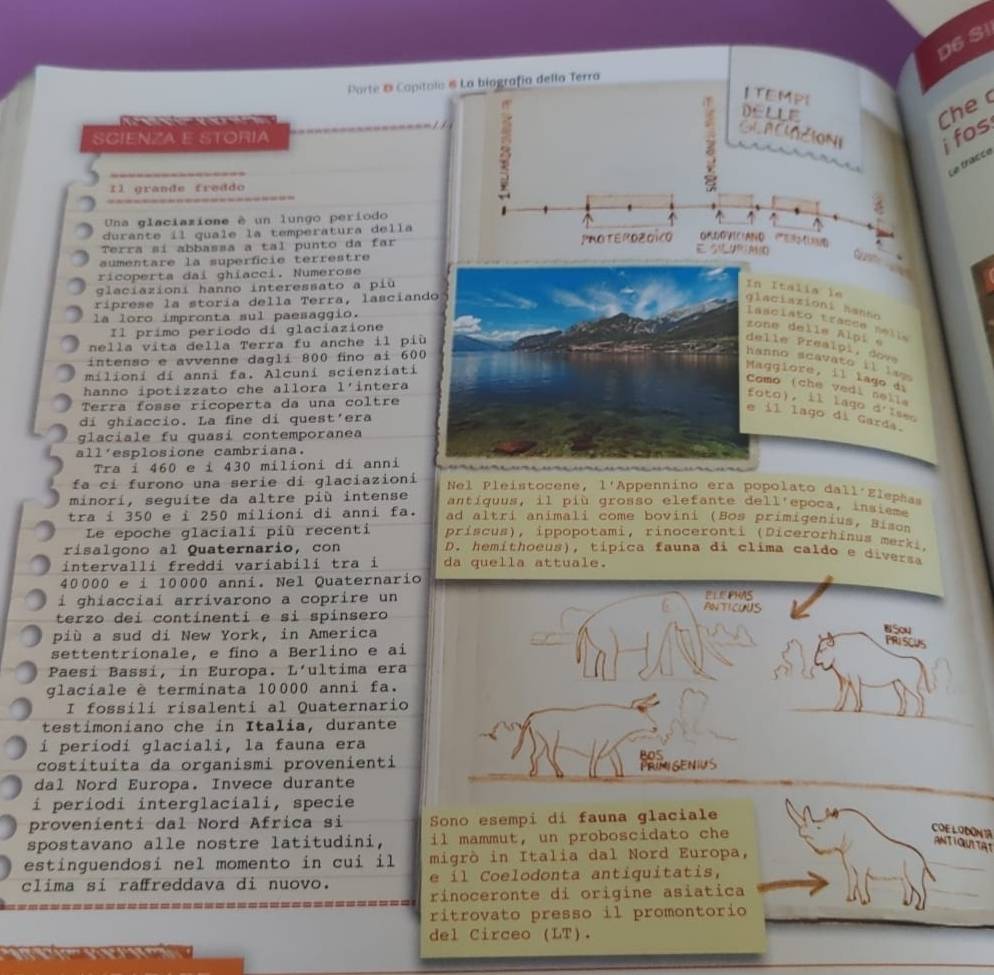 Parte Capitolo 6 La biografia della Terra
SCIENZA E STORIA
Il grande freddo
Una glaciazione è un lungo periodo
durante il quale la temperatura della
Terra si abbassa a tal punto da far
aumentare la superficie terrestre
ricoperta dai ghiacci. Numerose
glaciazioni hanno interessato a più
riprese la storia della Terra, lasciando
la loro impronta sul paesaggio.
Il primo periodo di glaciazione
nella vita della Terra fu anche il più
intenso e avvenne dagli 800 fino ai 600
milioni di anni fa. Alcuni scienziati
hanno ipotizzato che allora l'intera
Terra fosse ricoperta da una coltre
di ghiaccio. La fine di quest'era
glaciale fu quasi contemporanea
all'esplosione cambriana.
Tra i 460 e i 430 milioni di anni
fa ci furono una serie di glaciazioni
minori, seguite da altre più intense
tra i 350 e i 250 milioni di anni fa.
Le epoche glaciali più recenti
risalgono al Quaternario, con
intervalli freddi variabili tra i
40000 e i 10000 anni. Nel Quaternario
i ghiacciai arrivarono a coprire un
terzo dei continenti e si spinsero
più a sud di New York, in America
settentrionale, e fino a Berlino e ai
Paesi Bassi, in Europa. L'ultima era
glaciale è terminata 10000 anni fa.
I fossili risalenti al Quaternario
testimoniano che in Italia, durante
i periodi glaciali, la fauna era
costituita da organismi provenienti
dal Nord Europa. Invece durante
i periodi interglaciali, specie
provenienti dal Nord Africa si
spostavano alle nostre latitudini,
estinguendosi nel momento in cui il
clima si raffreddava di nuovo.
I TEMPI
DELLE
GLACIAZIONI
PROTEROZOICO
ORDOVICIANO
E SILURIANO
PERMIANO
In Italia le
glaciazioni hanno
lasciato tracce nelle
zone delle Alpi e
delle Prealpi, dove
hanno scavato il lago
Maggiore, il lago di
Como (che vedi nella
foto), il lago d'Iseo
e il lago di Garda.
Nel Pleistocene, l'Appennino era popolato dall'Elephas
antiquus, il più grosso elefante dell'epoca, insieme
ad altri animali come bovini (Bos primigenius, Bison
priscus), ippopotami, rinoceronti (Dicerorhinus merki,
D. hemithoeus), tipica fauna di clima caldo e diversa
da quella attuale.
ELEPHAS
ANTICUUS
BISON
PRISCUS
BOS
PRIMIGENIUS
Sono esempi di fauna glaciale
il mammut, un proboscidato che
migrò in Italia dal Nord Europa,
e il Coelodonta antiquitatis,
rinoceronte di origine asiatica
ritrovato presso il promontorio
del Circeo (LT).
COELODONTA
ANTIQUITAT
D6 SI
Che c
i foss
Le tracce